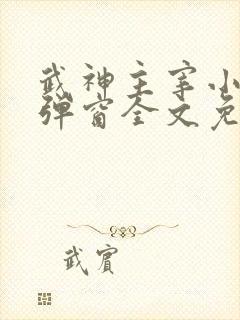 武神主宰小
弹窗全文免
武宾